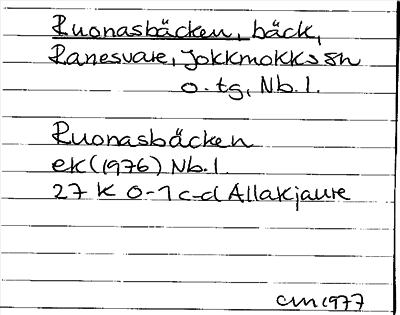 Ruonasbäcken, bäck,
Ranesvare, Jokkmokks sn
o. tg, Nb. l.
Ruonasbäcken
ek (1976) Nb. l
27 K 0-1 c-d Allakjaure
cm 1977